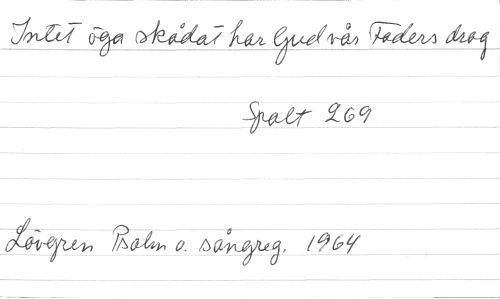 Intet öga skådat har Gud vår Faders drag
Spalt 269
Lövgren Psalm o. sångreg. 1964